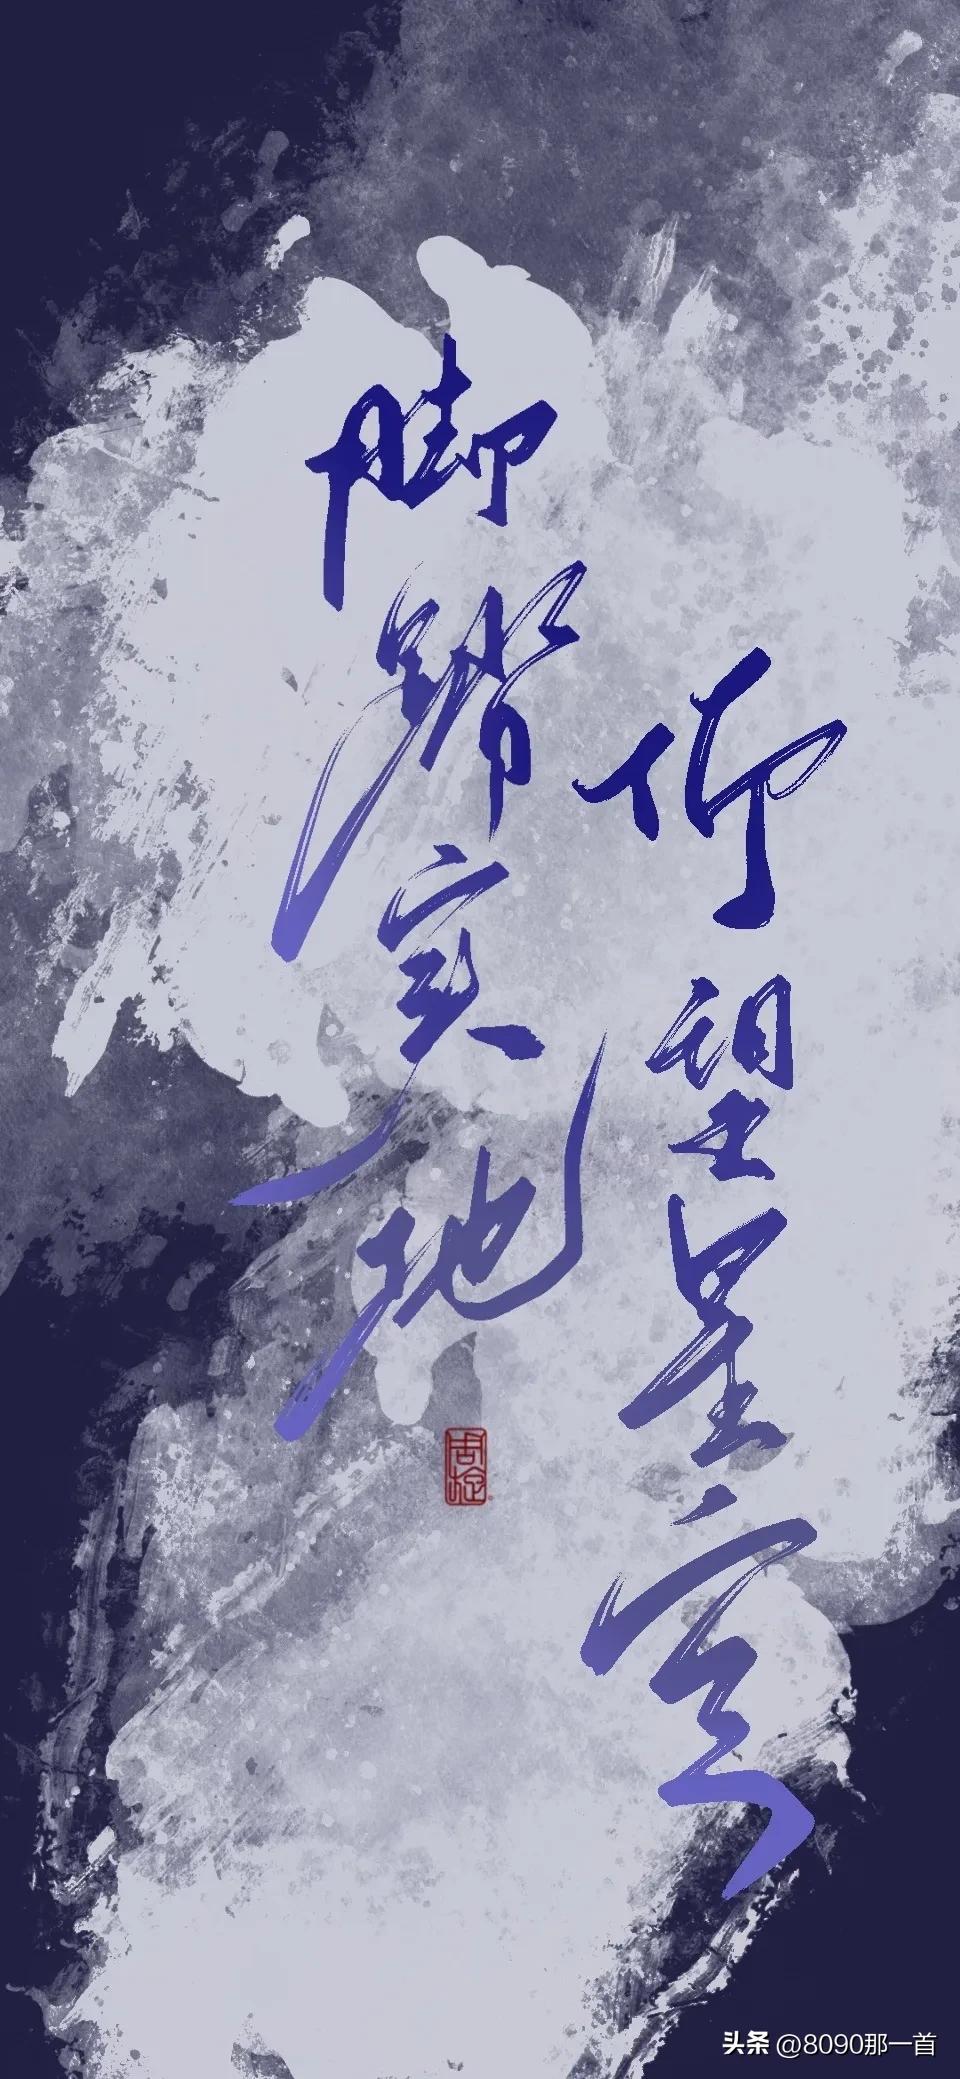 仰望星空
脚踏实地
头条 @8090那一首